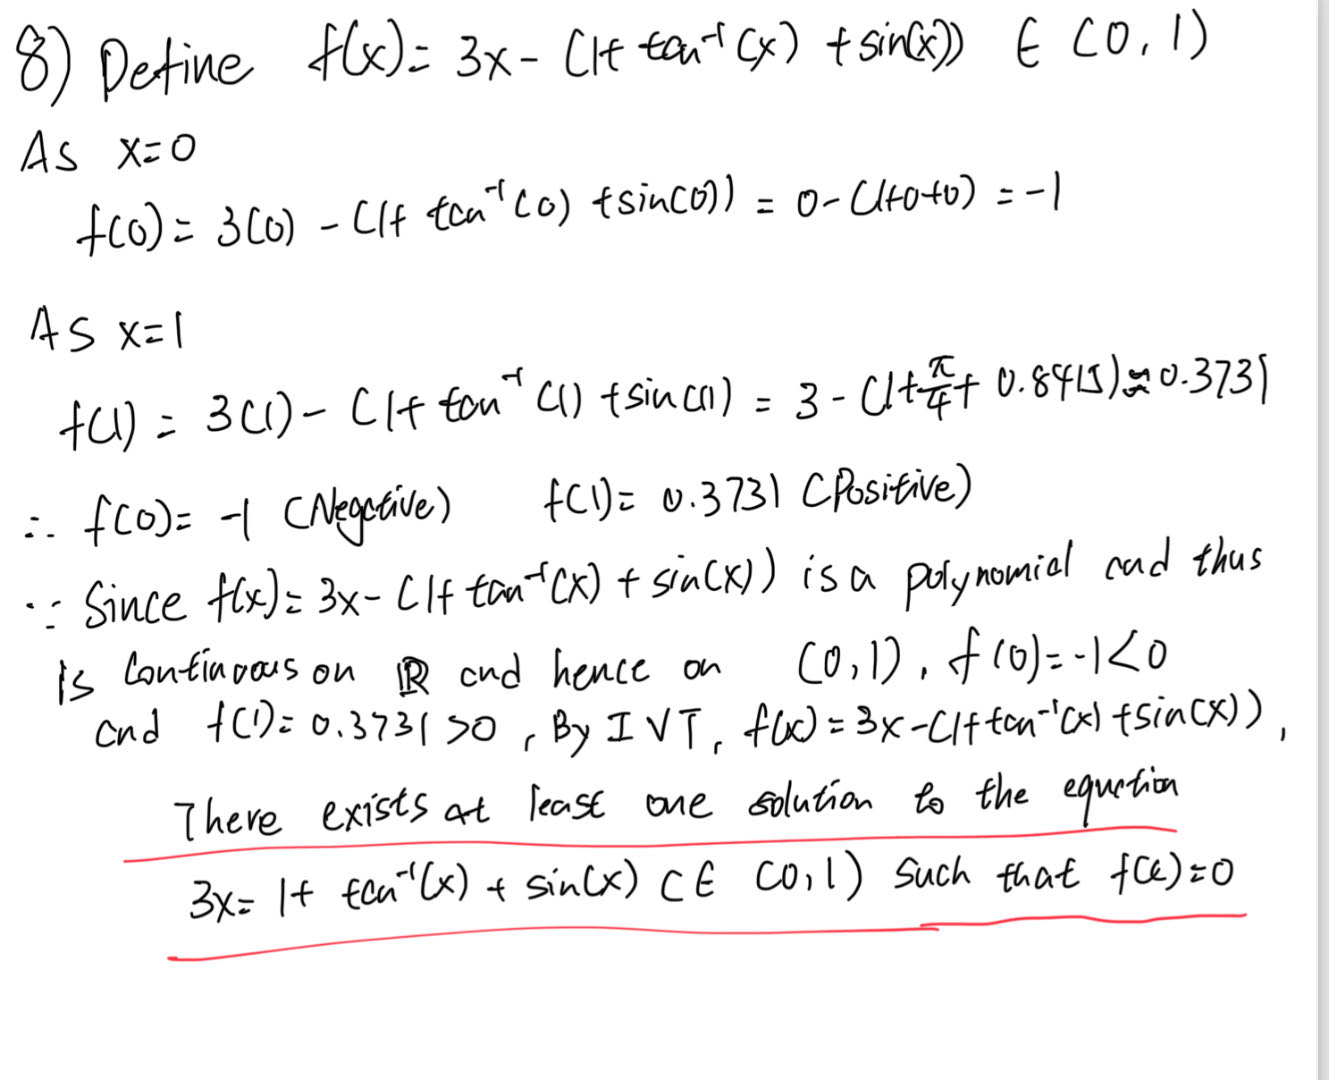 8) Define f(x) = 3x - (1 + tan⁻¹(x) + sin(x)) ∈ (0, 1)
As x=0
f(0) = 3(0) - (1 + tan⁻¹(0) + sin(0)) = 0 - (1+0+0) = -1
As x=1
f(1) = 3(1) - (1 + tan⁻¹(1) + sin(1)) = 3 - (1 + π/4 + 0.8415) ≈ 0.3731
∴ f(0) = -1 (Negative) f(1) = 0.3731 (Positive)
∵ Since f(x) = 3x - (1 + tan⁻¹(x) + sin(x)) is a polynomial and thus
is continuous on ℝ and hence on (0,1), f(0) = -1 < 0
and f(1) = 0.3731 > 0, By IVT, f(x) = 3x - (1 + tan⁻¹(x) + sin(x)),
There exists at least one solution to the equation
3x = 1 + tan⁻¹(x) + sin(x) c ∈ (0,1) such that f(c) = 0